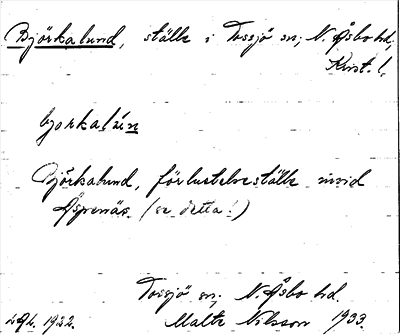 Björkalund, ställe i Tossjö sn; N. Åsbo hd;
Krist. l.
Björkalund, förlustelseställe invid
Äspenäs (se detta!)
Tossjö sn; N. Åsbo hd.
Malte Nilsson 1933.